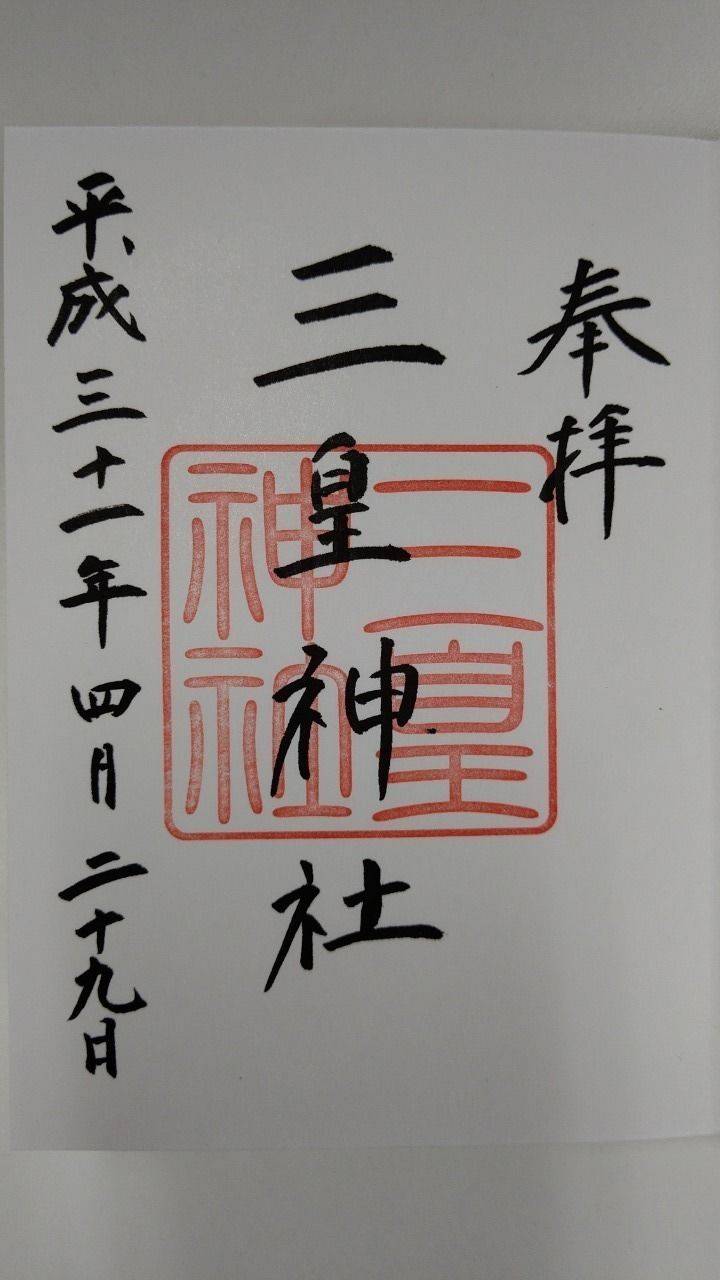 奉拝
三皇神社
三皇神社
平成三十一年四月二十九日